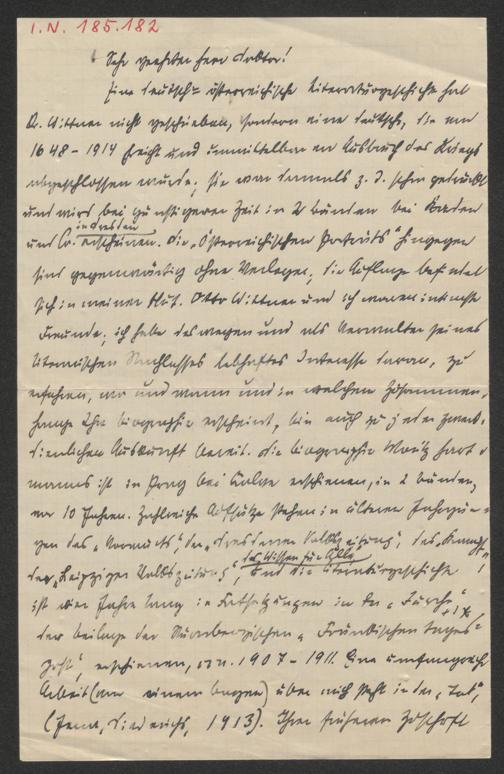 I.N. 185.182
Sehr geehrter Herr Doktor!
Eine deutsch-österreichische Literaturgeschichte hat
O. Wittner nicht geschrieben, sondern eine deutsche, die von
1648 – 1914 reicht und unmittelbar vor Ausbruch des Kriegs
abgeschlossen wurde; sie war damals z. T. schon gedruckt
und wird bei günstigerer Zeit in 2 Bänden bei Kaden
in Dresden
und Co. erscheinen. Die „Österreichischen Porträts“ hingegen
sind gegenwärtig ohne Verleger; die Auflage befindet
sich in meiner Hut. Otto Wittner und ich waren intimste
Freunde; ich habe deswegen und als Verwalter seines
literarischen Nachlasses lebhaftes Interesse daran, zu
erfahren, wo und wann und in welchem Zusammen-
hange Ihre Biographie erscheint, bin auch zu jeder zweck-
dienlichen Auskunft bereit. Die Biographie Moritz Hart-
manns ist in Prag bei Calve erschienen, in 2 Bänden,
vor 10 Jahren. Zahlreiche Aufsätze stehen in älteren Jahrgän-
gen des „Vorwärts“, der „Dresdener Volkszeitung“, des „Kampf“,
der „Leipziger Volkszeitung“, und die Literaturgeschichte
„des Wissen für Alle“
ist vier Jahre lang in Fortsetzungen in der
der Beilage der Nürnbergischen „Fränkischen Tages-
post“, erschienen, von 1907 – 1911. Eine umfangreiche
Arbeit (von einem Bogen) über mich steht in der „Tat“,
(Jena, Diederichs, 1913). Ihrer früheren Zuschrift